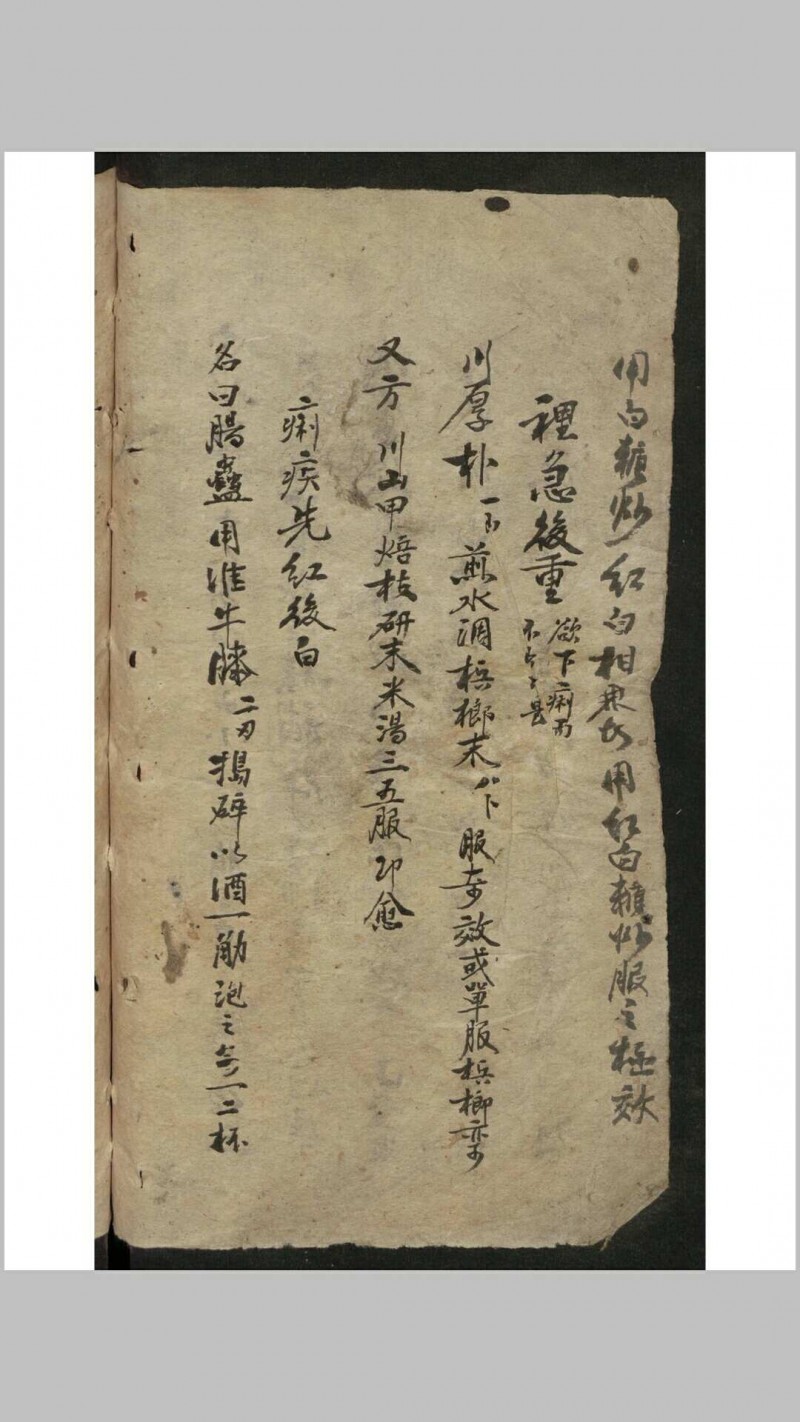 用白糖炒紅白相界者用紅白糖炒服之極效
裡急後重 欲下痢而不今下是
川厚朴 煎水調梹榔末 服奇效或單服梹榔亦
又方 川山甲焙枝研末米湯三五服即愈
痢疾先紅後白
名曰腸蠱用淮牛膝二刄搗碎以酒一觔泡之 一二杯